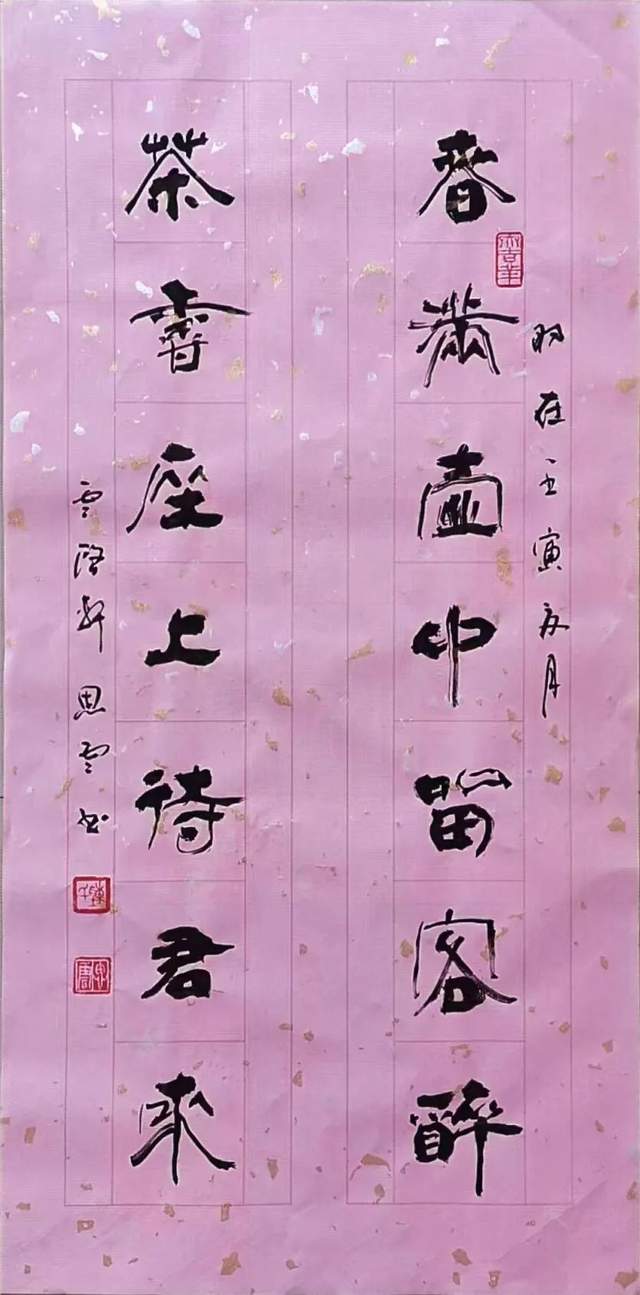 时在壬寅夏月
春滿壺中留客醉
茶香座上待君來
雲軒思雲书